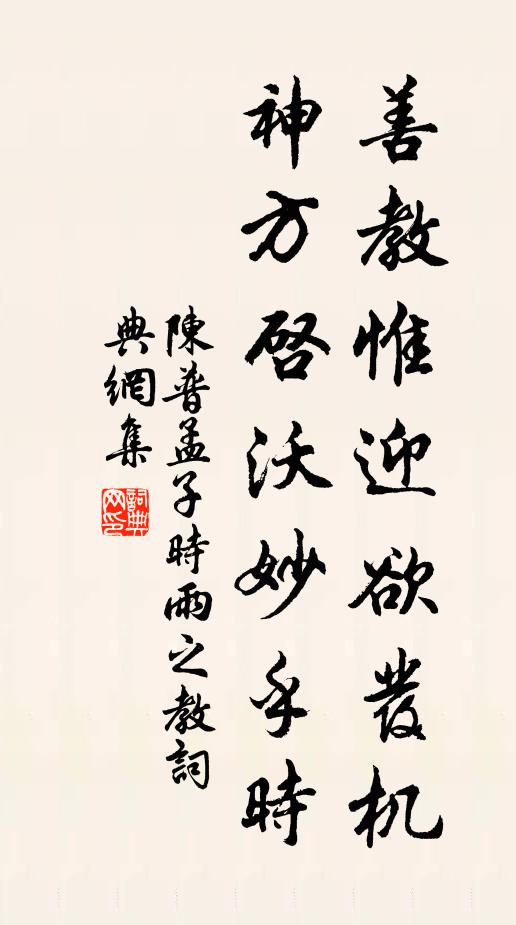 善教惟迎欲發机
神方啓沃妙乎時
陳普孟子時雨之教詞
典網集
詞典网印